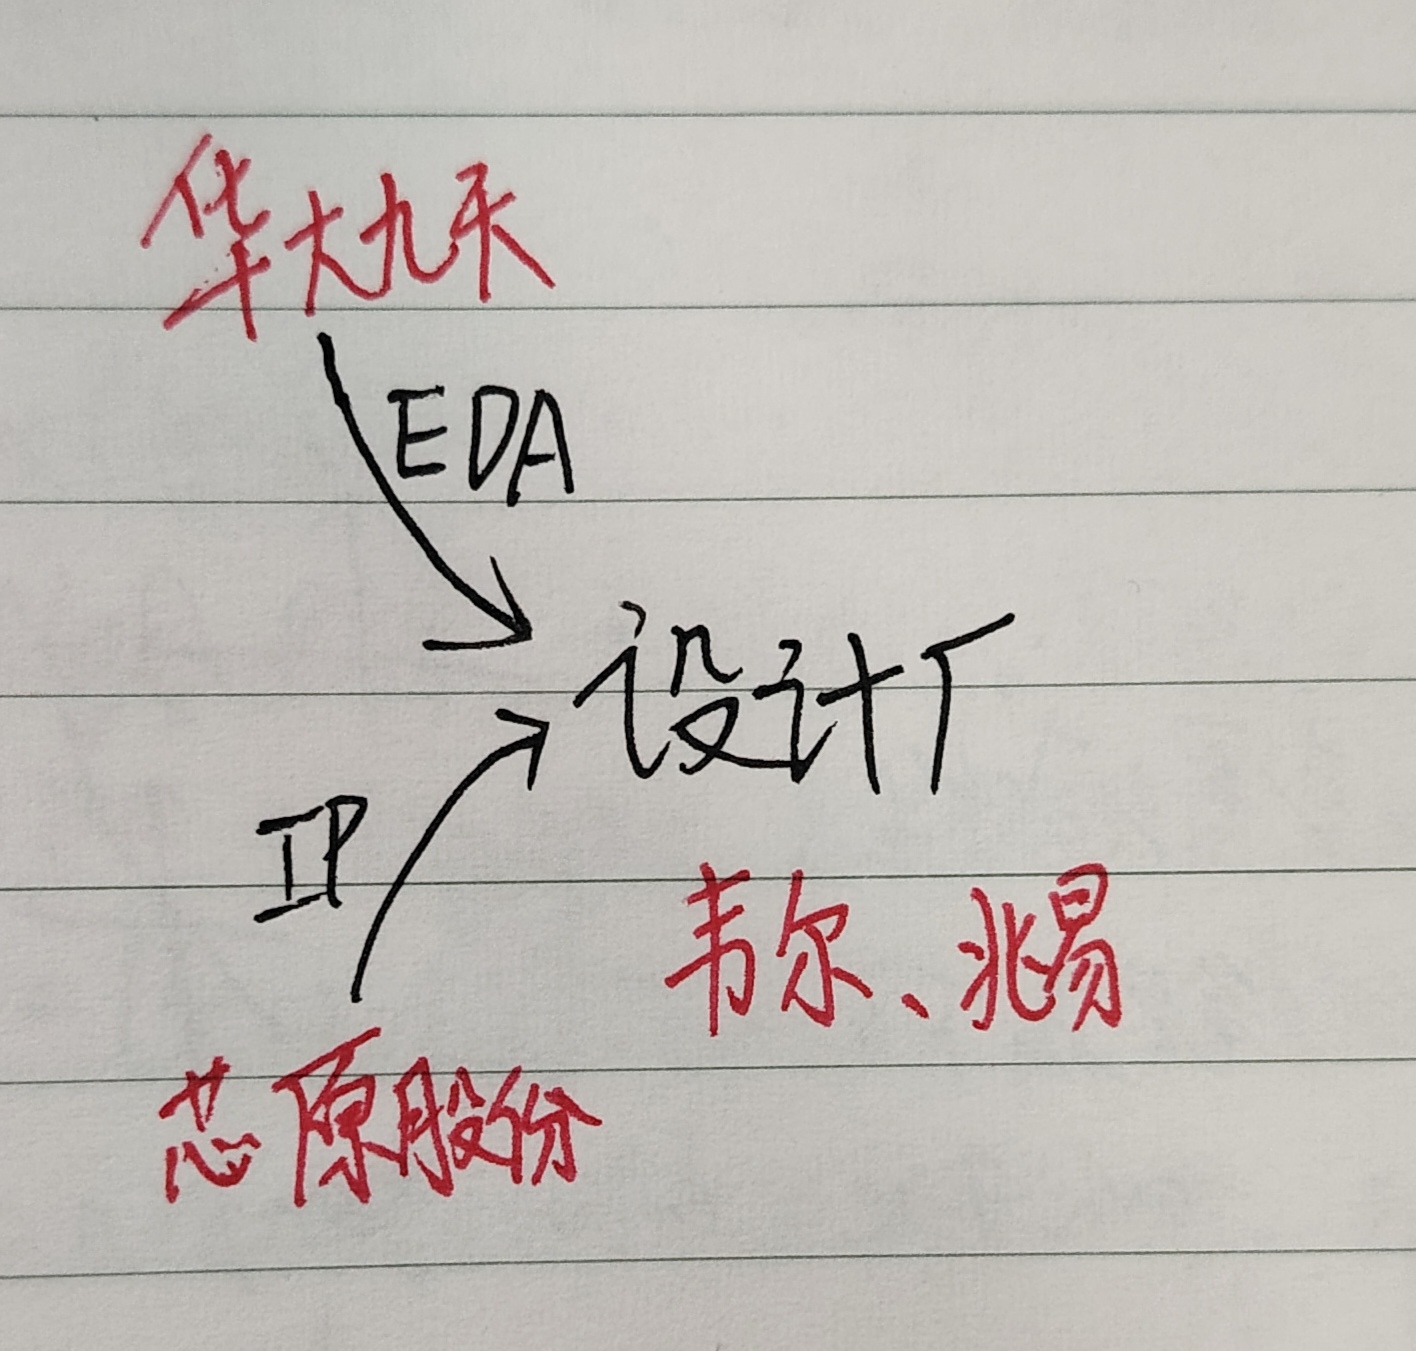 华大九天
EDA
设计厂
IP
韦尔、兆易
芯原股份